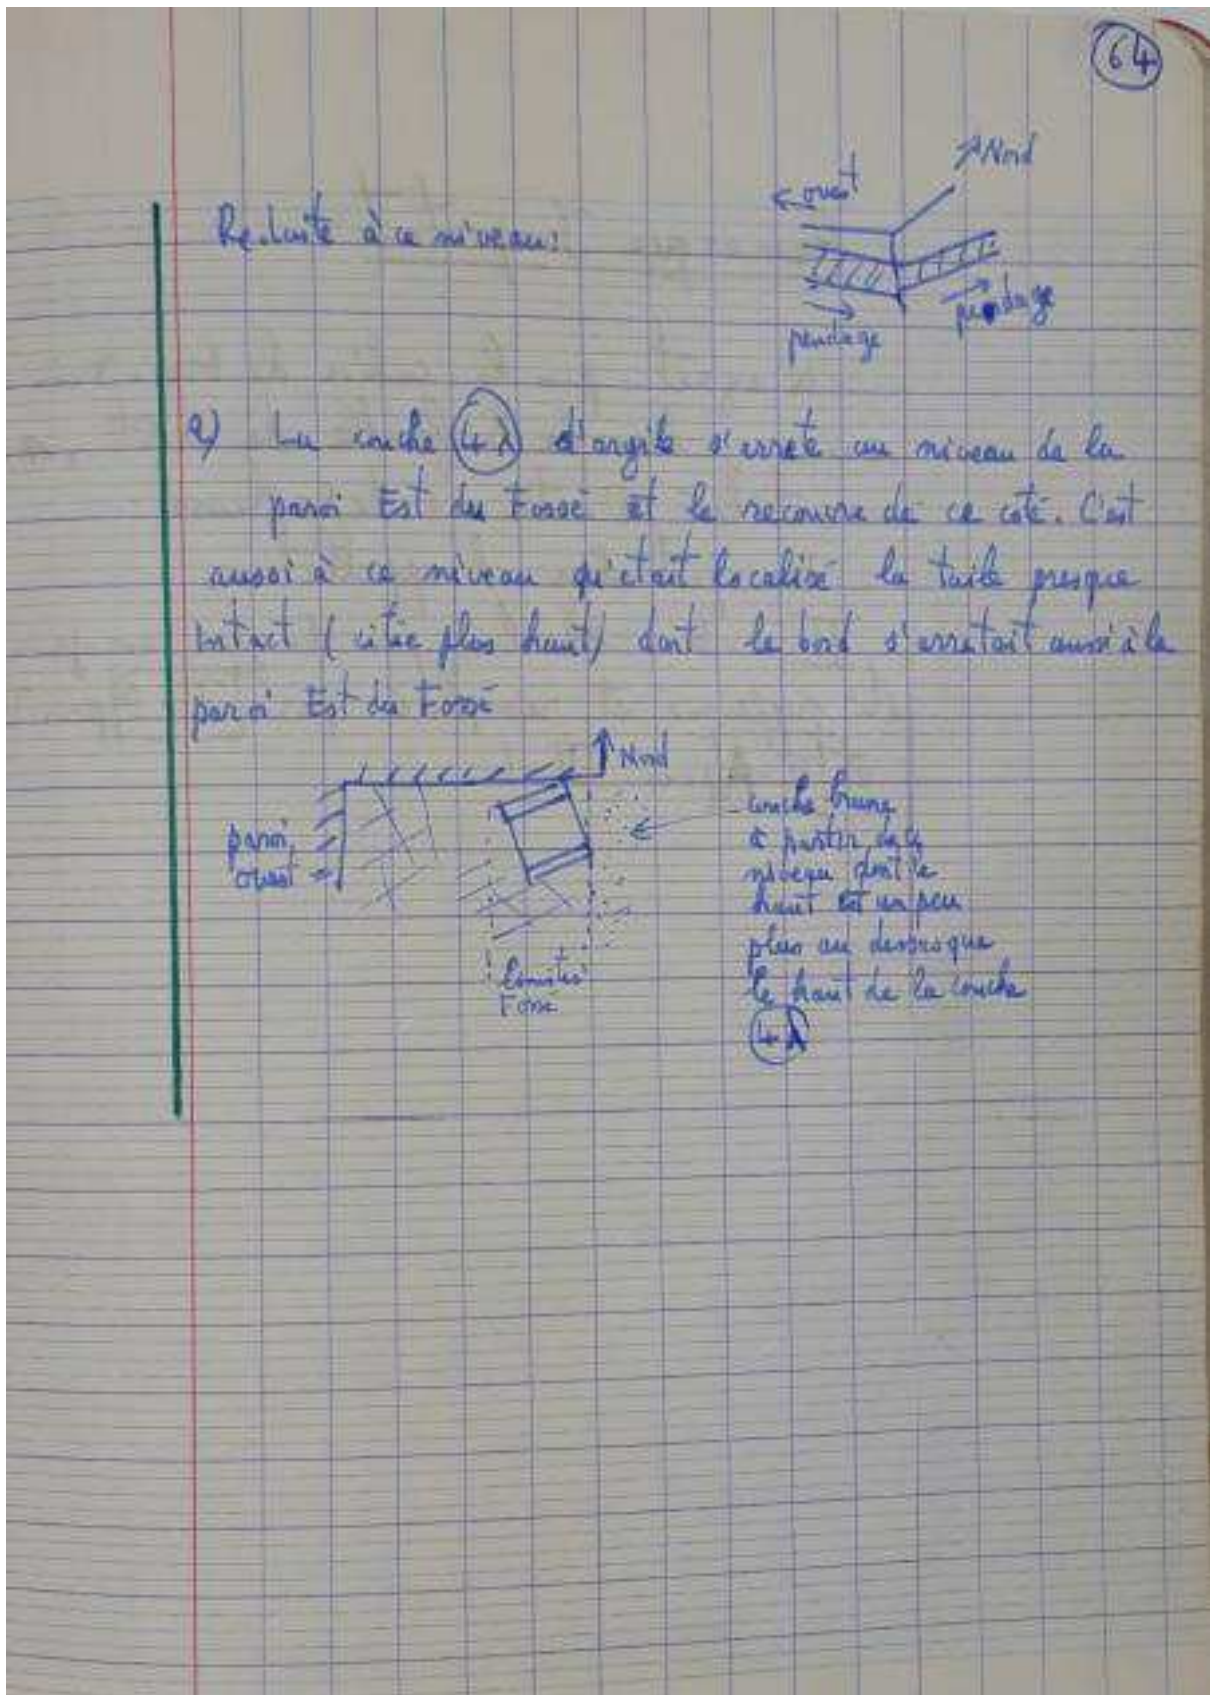 64
Nord
ouest
à ce niveau:
pendage
pendage
2) La couche 4λ d'argile s'arrete au niveau de la
paroi Est du Fossé et le recouvre de ce coté. C'est
aussi à ce niveau qu'était localisé la tuile presque
intact (citée plus haut) dont le bord s'arretait aussi à la
paroi Est du Fossé
Nord
paroi
ouest
couche brune
à partir de ce
niveau dont le
haut est un peu
plus au dessus que
le haut de la couche
4λ
limites
Fossé